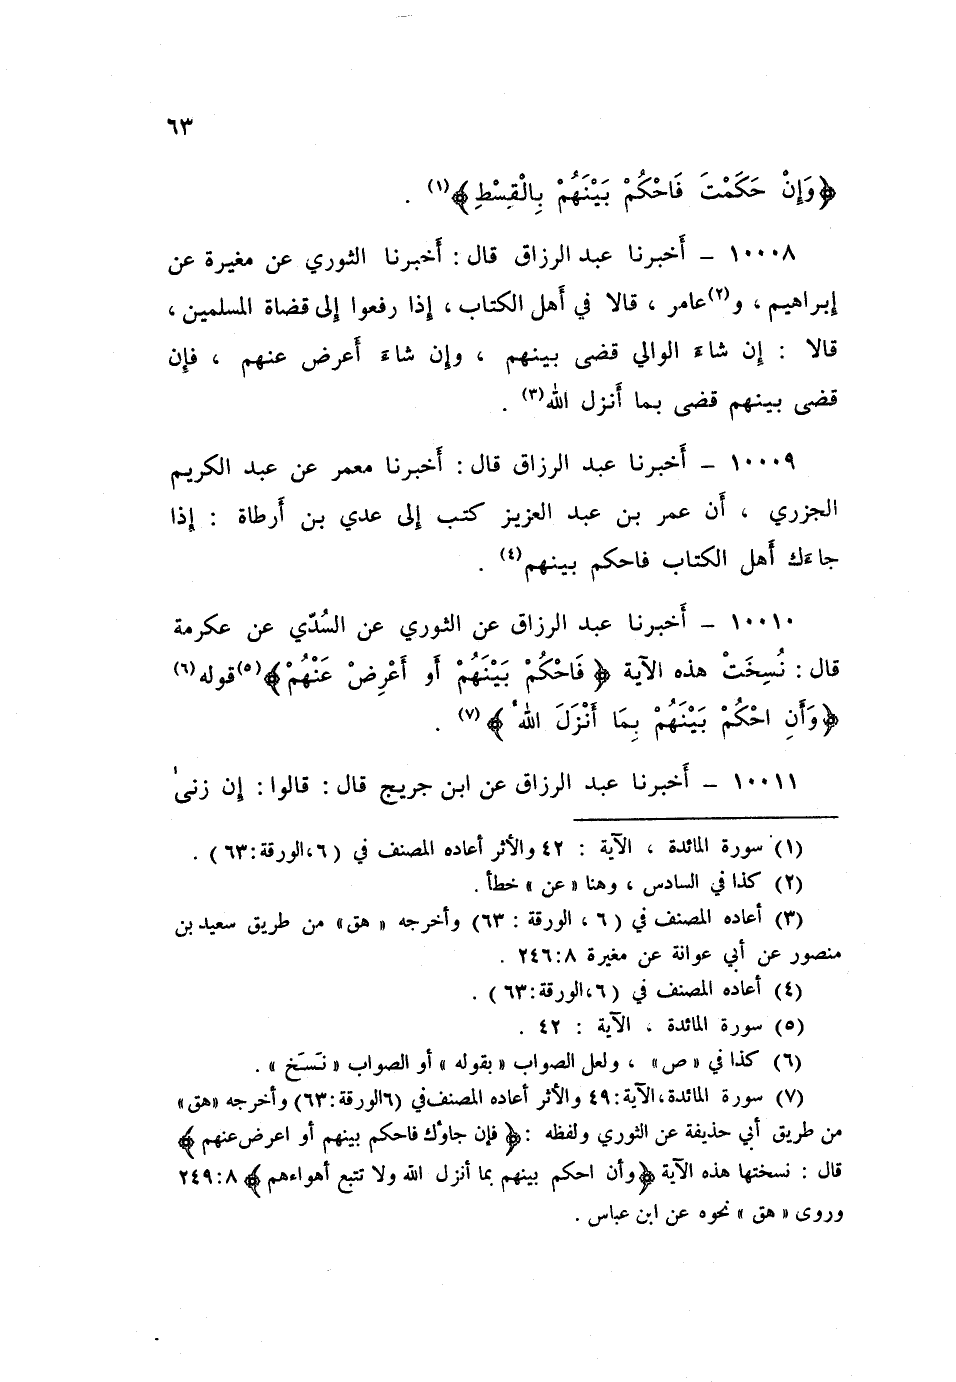 ٦٣
﴿وَإِنْ حَكَمْتَ فَاحْكُمْ بَيْنَهُمْ بِالْقِسْطِ﴾(١) .
١٠٠٠٨ ـ أَخبرنا عبد الرزاق قال : أَخبرنا الثوري عن مغيرة عن
إبراهيم ، و(٢)عامر ، قالا في أَهل الكتاب ، إِذا رفعوا إلى قضاة المسلمين ،
قالا : إِن شاءَ الوالي قضى بينهم ، وإِن شاءَ أَعرض عنهم ، فإن
قضى بينهم قضى بما أَنزل الله(٣) .
١٠٠٠٩ ـ أَخبرنا عبد الرزاق قال : أَخبرنا معمر عن عبد الكريم
الجزري ، أَن عمر بن عبد العزيز كتب إلى عدي بن أَرطاة : إِذا
جاءَك أَهل الكتاب فاحكم بينهم(٤) .
١٠٠١٠ ـ أَخبرنا عبد الرزاق عن الثوري عن السُدّي عن عكرمة
قال : نُسِخَتْ هذه الآية ﴿ فَاحْكُمْ بَيْنَهُمْ أَو أَعْرِضْ عَنْهُمْ﴾(٥)قوله(٦)
﴿وَأَنِ احْكُمْ بَيْنَهُمْ بِمَا أَنْزَلَ اللهُ﴾(٧) .
١٠٠١١ ـ أَخبرنا عبد الرزاق عن ابن جريج قال : قالوا : إِن زنىٰ
(١) سورة المائدة ، الآية : ٤٢ والأثر أعاده المصنف في (٦،الورقة:٦٣) .
(٢) كذا في السادس ، وهنا «عن» خطأ .
(٣) أعاده المصنف في (٦ ، الورقة : ٦٣) وأخرجه «هق» من طريق سعيد بن
منصور عن أبي عوانة عن مغيرة ٢٤٦:٨ .
(٤) أعاده المصنف في (٦،الورقة:٦٣) .
(٥) سورة المائدة ، الآية : ٤٢ .
(٦) كذا في «ص» ، ولعل الصواب «بقوله» أو الصواب «نَسَخ» .
(٧) سورة المائدة،الآية:٤٩ والأثر أعاده المصنف في (٦الورقة:٦٣) وأخرجه «هق»
من طريق أبي حذيفة عن الثوري ولفظه :﴿ فإن جاوٴك فاحكم بينهم أو اعرض عنهم ﴾
قال : نسختها هذه الآية ﴿وأن احكم بينهم بما أنزل الله ولا تتبع أهواءهم ﴾ ٢٤٩:٨
وروى «هق» نحوه عن ابن عباس .